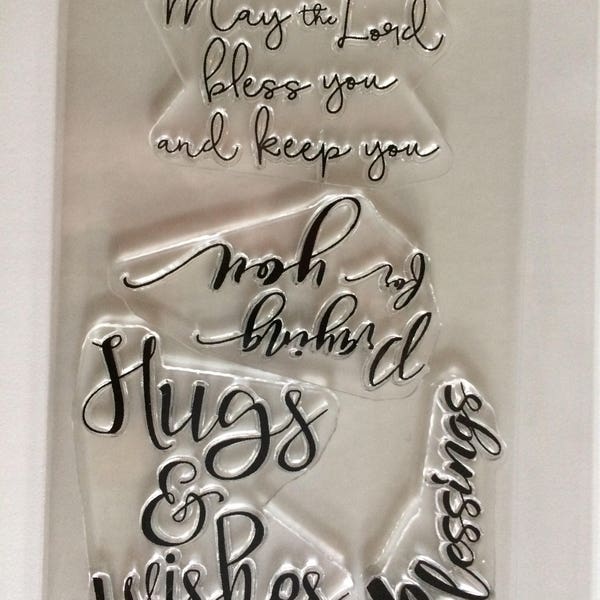 May the Lord
bless you
and keep you
Praying
for you
Hugs
&
wishes
blessings